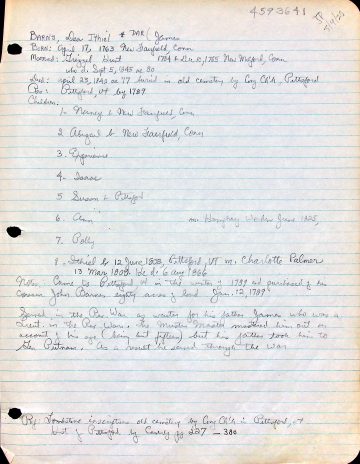 4593641
JP
7/9/05
BARNES, Dea Ithiel * DAR (James
Born: April 17, 1763 New Fairfield, Conn
Married: Grizzel Hunt 1784 & Dec 2, 1785 New Milford, Conn
who d. Sept 5, 1845 ae 80
Died: April 23, 1840 ae 77 buried in old cemetery by Cong Ch'h, Pittsford
Res: Pittsford, Vt by 1789
Children:
1- Nancy b New Fairfield, Conn
2 Abigail b New Fairfield, Conn
3. Experience
4- Isaac
5 Susan b Pittsford
6. Ann m- Humphrey June 1825,
7. Polly
8- Ithiel b 12 June 1803, Pittsford, Vt m. Charlotte Palmer
13 May 1804 he d. 6 Aug 1866
Note: Came to Pittsford Vt in the winter of 1789 and purchased of his
John Barnes eighty acres of land Jan. 12, 1789
Served in the Rev War as waiter for his father James who was a
Lieut. in the Rev War. The Muster Master mustered him out on
account of his age (being but fifteen) but his father took him to
Gen Putnam. As a result he served through the War
Ref: Tombstone inscriptions old cemetery by Cong Ch'h in Pittsford, Vt
Hist of Pittsford by Caverly pg 227 - 380